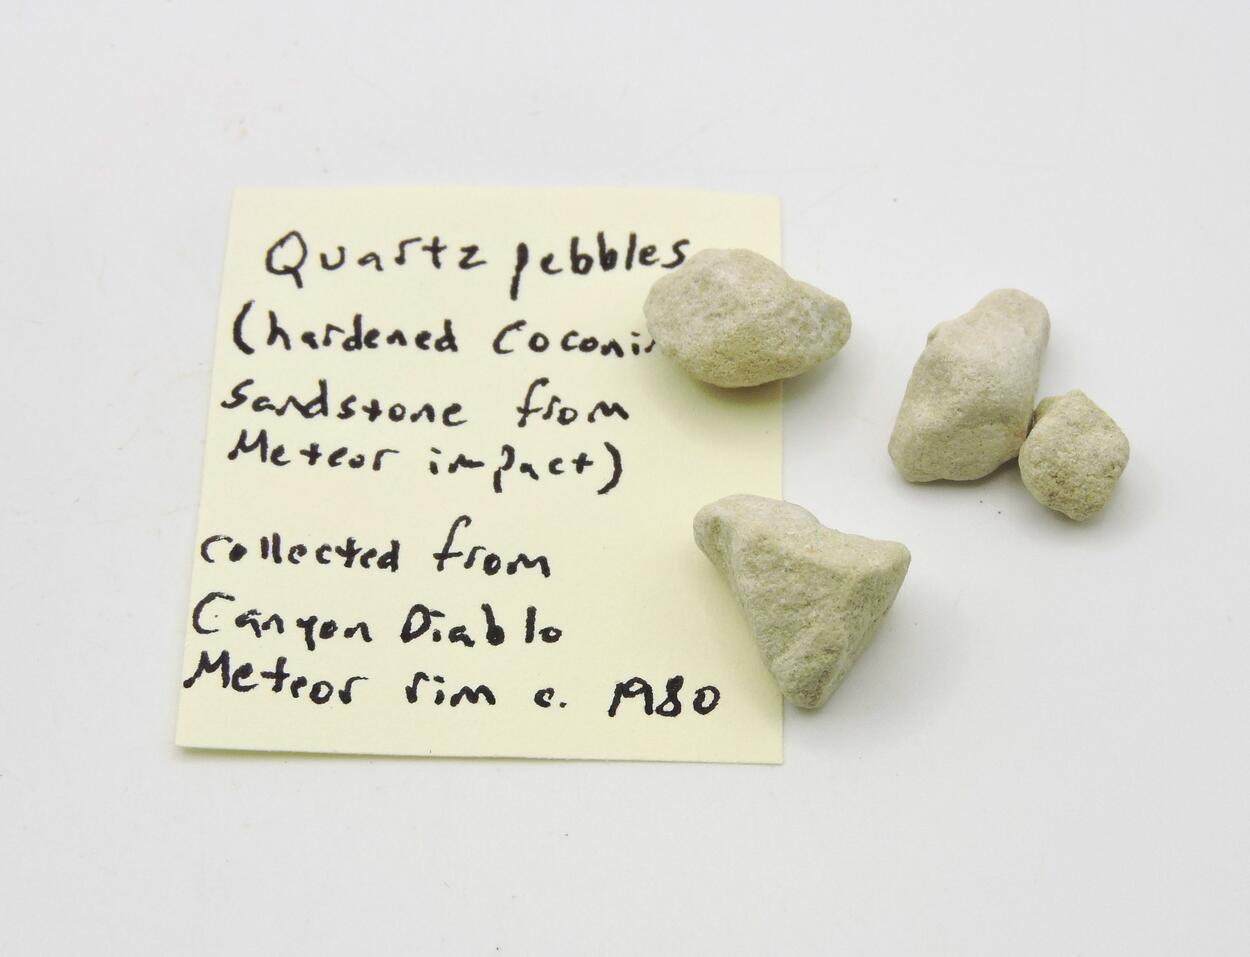 Quartz pebbles
(hardened
sandstone from
Meteor impact)
collected from
Canyon Diablo
Meteor rim c. 1980